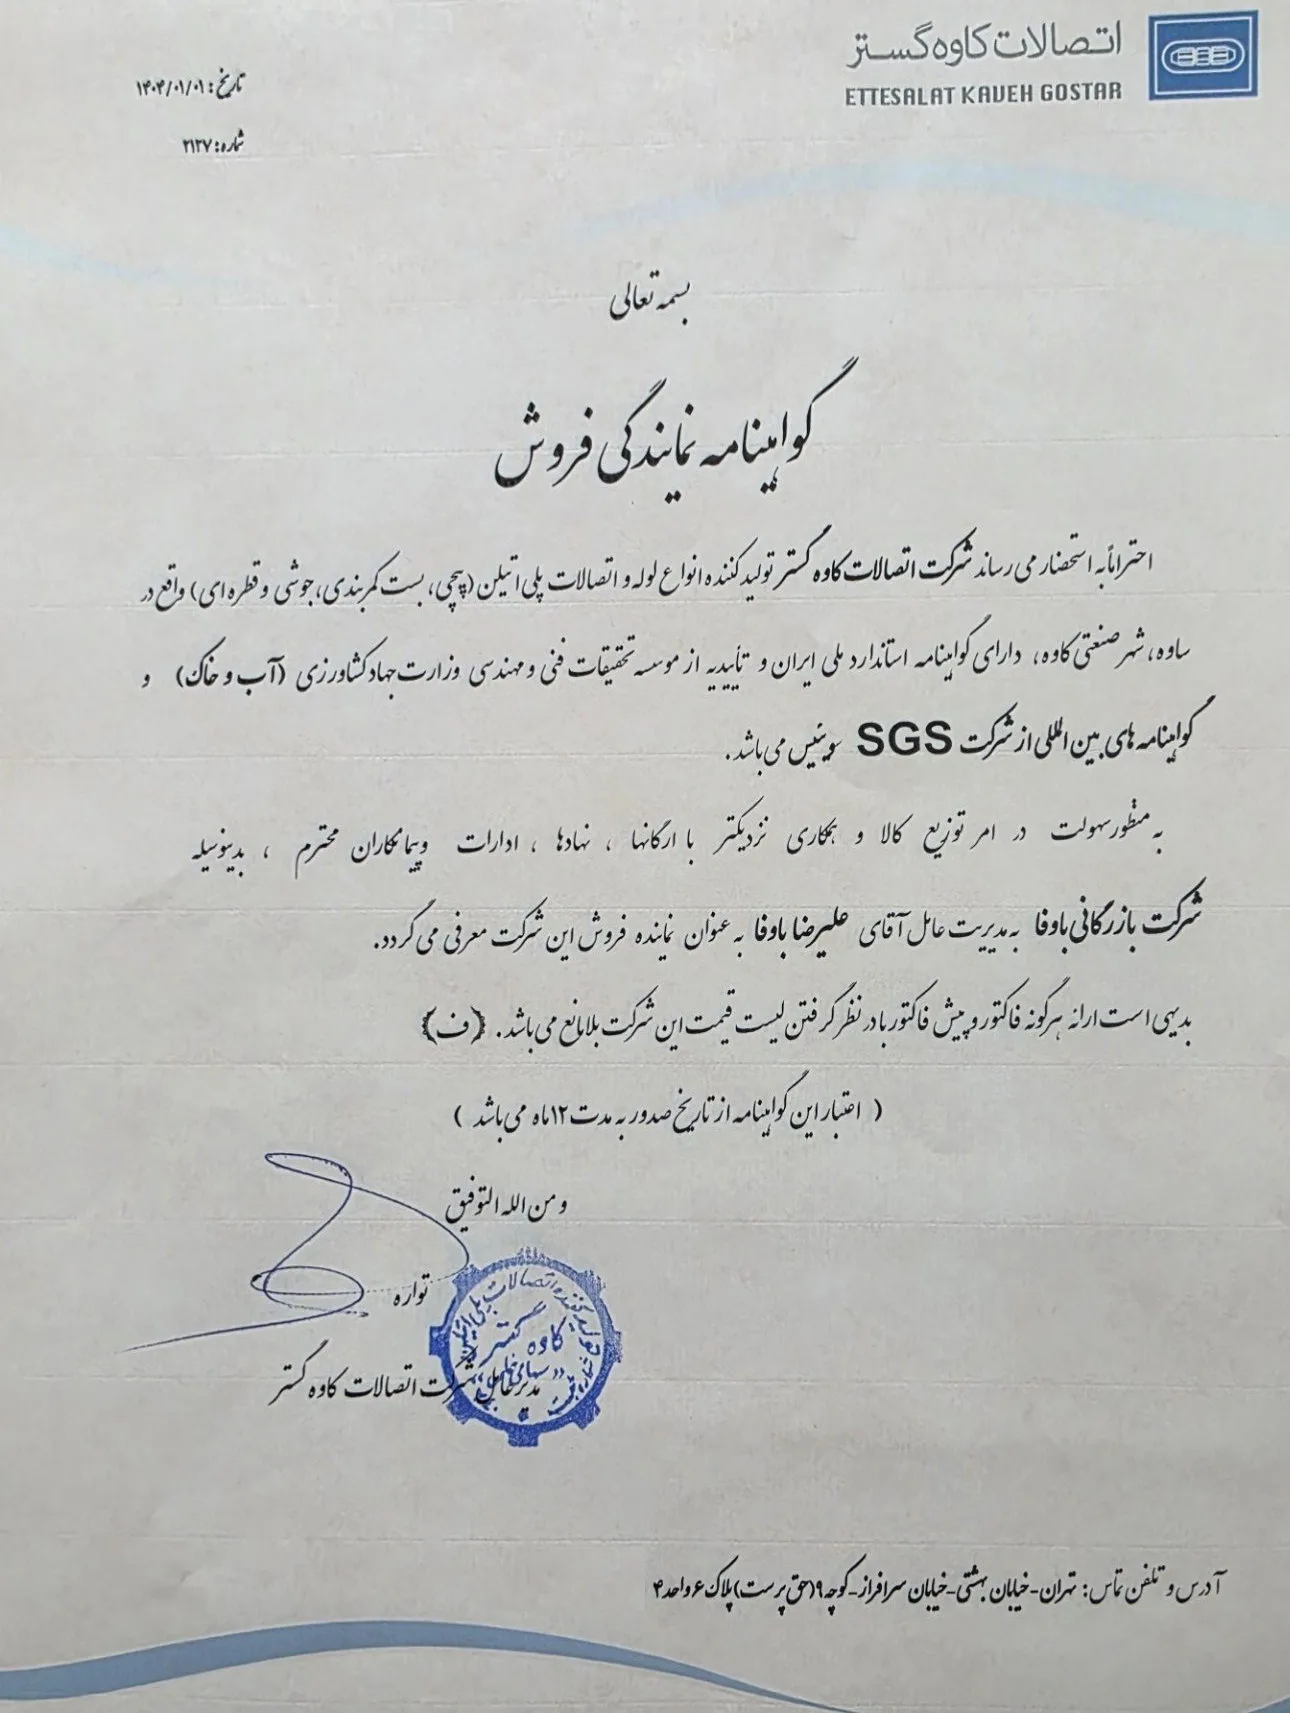 اتصالات کاوه گستر
ETTESALAT KAVEH GOSTAR
تاریخ: ۱۴۰۴/۰۱/۰۱
شماره: ۲۱۲۷
بسمه تعالی
گواهینامه نمایندگی فروش
احتراماً به استحضار می رساند شرکت اتصالات کاوه گستر تولید کننده انواع لوله و اتصالات پلی اتیلن (پیچی، بست کمربندی، جوشی و قطره ای) واقع در
ساوه، شهر صنعتی کاوه، دارای گواهینامه استاندارد ملی ایران و تأییدیه از موسسه تحقیقات فنی و مهندسی وزارت جهاد کشاورزی (آب و خاک) و
گواهینامه های بین المللی از شرکت SGS سوئیس می باشد.
به منظور سهولت در امر توزیع کالا و همکاری نزدیکتر با ارگانها ، نهادها ، ادارات و پیمانکاران محترم ، بدینوسیله
شرکت بازرگانی باوفا به مدیریت عامل آقای علیرضا باوفا به عنوان نماینده فروش این شرکت معرفی می گردد.
بدیهی است ارائه هرگونه فاکتور و پیش فاکتور با در نظر گرفتن لیست قیمت این شرکت بلامانع می باشد. (ف)
( اعتبار این گواهینامه از تاریخ صدور به مدت ۱۲ ماه می باشد )
و من الله التوفیق
تواره
تولید کننده اتصالات پلی اتیلن
کاوه گستر
"سهامی خاص"
شماره ثبت
مدیرعامل شرکت اتصالات کاوه گستر
آدرس و تلفن تماس: تهران-خیابان بهشتی-خیابان سرافراز-کوچه ۹(حق پرست) پلاک ۶ واحد ۴